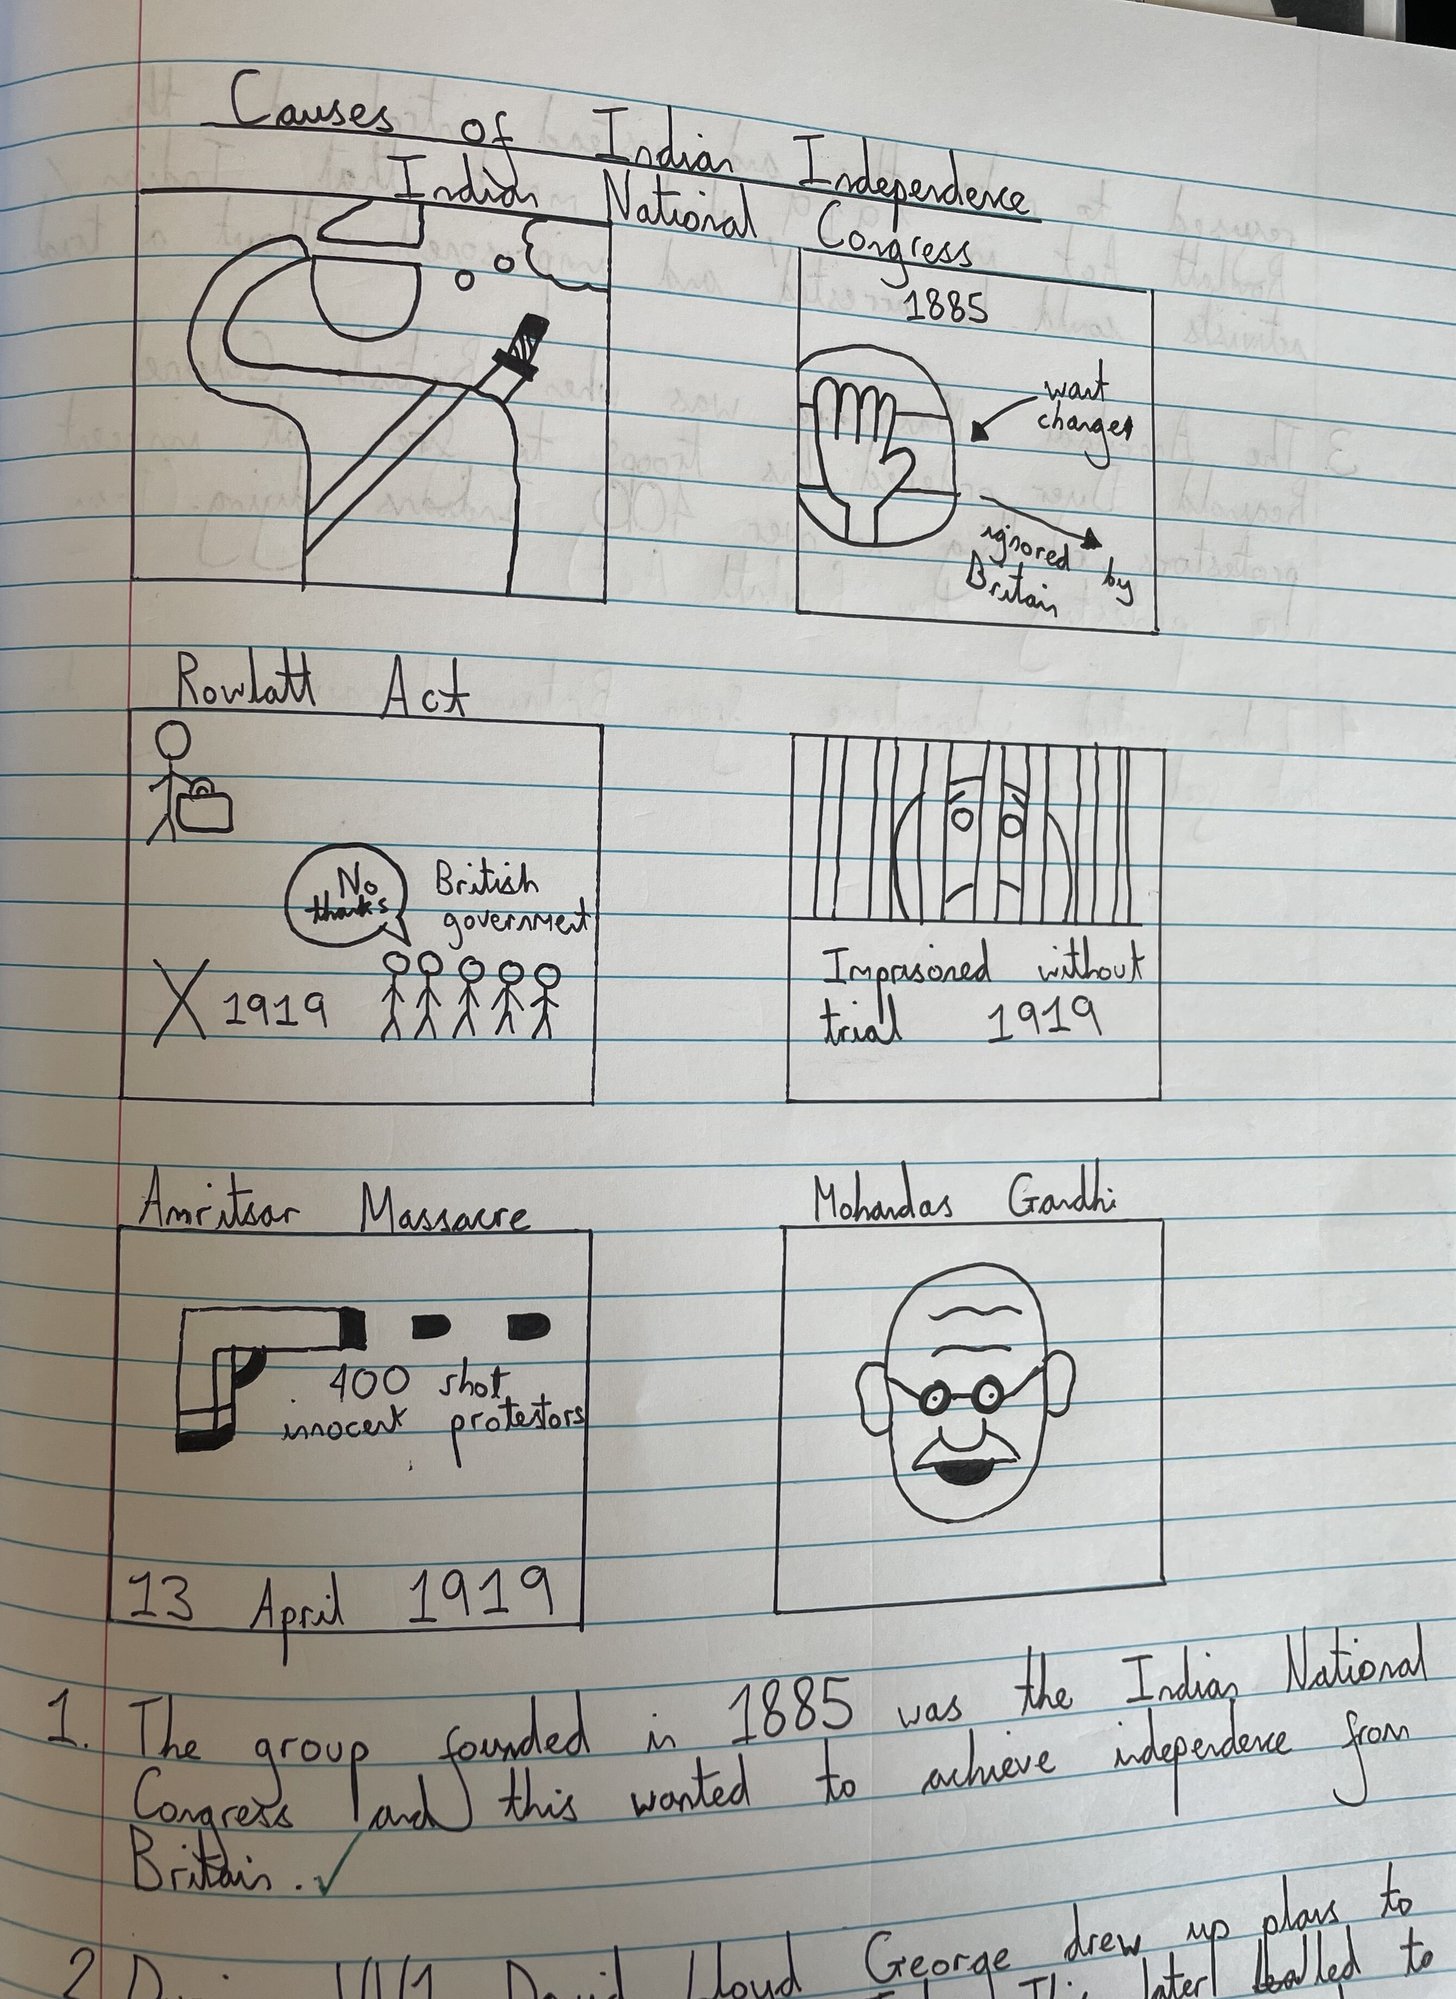 Causes of Indian Independence
Indian National Congress
1885
want
changes
ignored by
Britain
Rowlatt Act
No
thanks
British
government
X 1919
Imprisoned without
trial 1919
Amritsar Massacre
400 shot
innocent protestors
13 April 1919
Mohandas Gandhi
1. The group founded in 1885 was the Indian National
Congress and this wanted to achieve independence from
Britain.
2. David Lloyd George drew up plans to
This later to